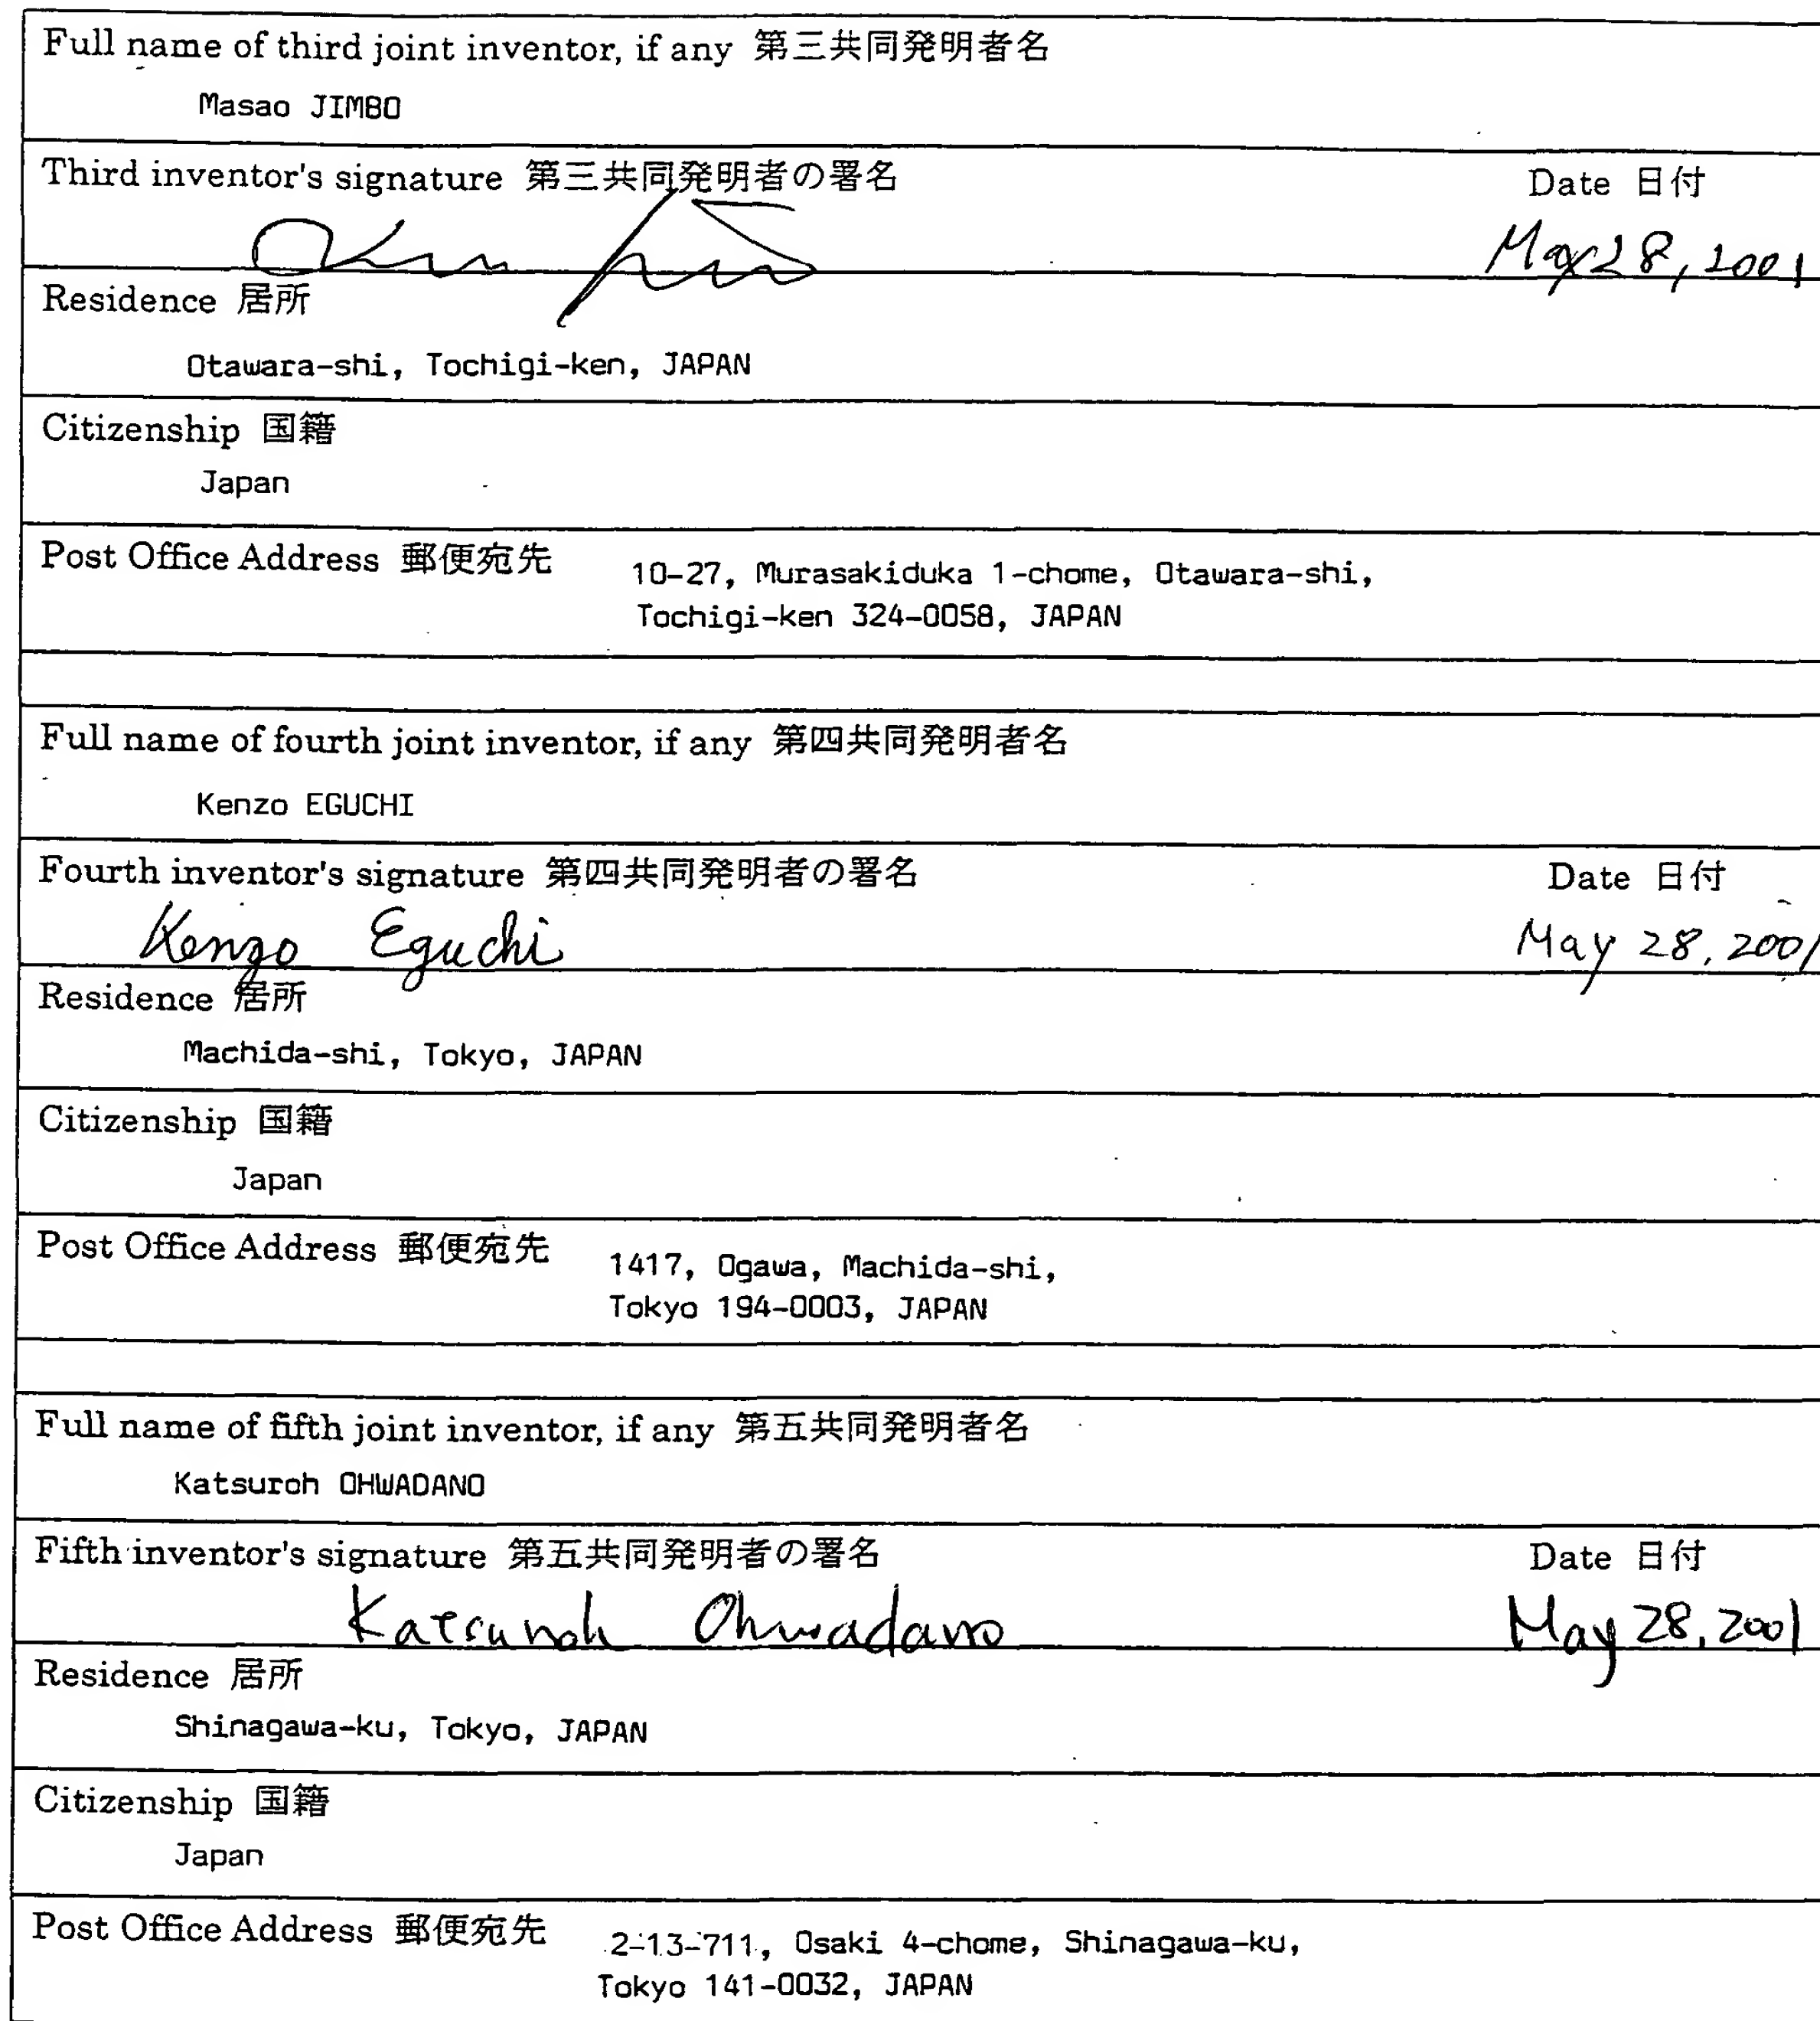 Full name of third joint inventor, if any 第三共同発明者名
Masao JIMBO
Third inventor's signature 第三共同発明者の署名
Date 日付
May 28, 2001
Residence 居所
Otawara-shi, Tochigi-ken, JAPAN
Citizenship 国籍
Japan
Post Office Address 郵便宛先
10-27, Murasakiduka 1-chome, Otawara-shi,
Tochigi-ken 324-0058, JAPAN
Full name of fourth joint inventor, if any 第四共同発明者名
Kenzo EGUCHI
Fourth inventor's signature 第四共同発明者の署名
Date 日付
Kenzo Eguchi
May 28, 2001
Residence 居所
Machida-shi, Tokyo, JAPAN
Citizenship 国籍
Japan
Post Office Address 郵便宛先
1417, Ogawa, Machida-shi,
Tokyo 194-0003, JAPAN
Full name of fifth joint inventor, if any 第五共同発明者名
Katsuroh OHWADANO
Fifth inventor's signature 第五共同発明者の署名
Date 日付
Katsuroh Ohwadano
May 28, 2001
Residence 居所
Shinagawa-ku, Tokyo, JAPAN
Citizenship 国籍
Japan
Post Office Address 郵便宛先
2-13-711, Osaki 4-chome, Shinagawa-ku,
Tokyo 141-0032, JAPAN